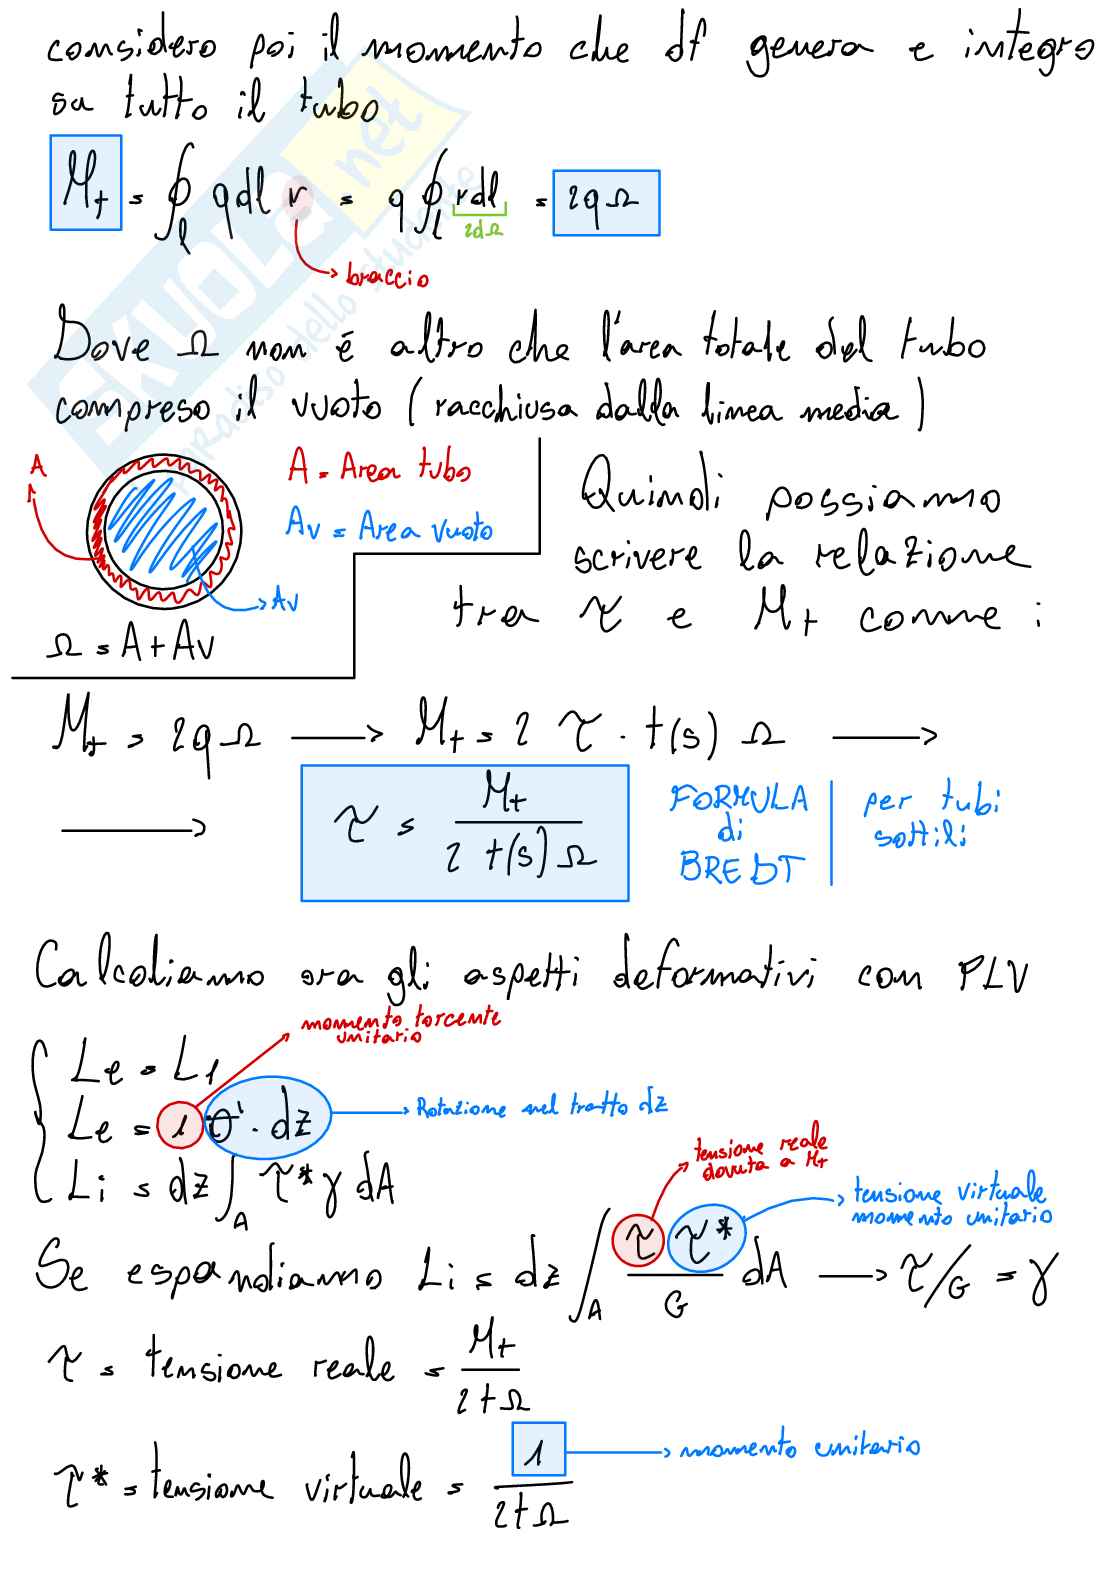 considero poi il momento che df genera e integro
su tutto il tubo
M_t = ∮_l q dl r = q ∮_l r dl = 2qΩ
2dΩ
braccio
Dove Ω non é altro che l'area totale del tubo
compreso il vuoto (racchiusa dalla linea media)
A
A = Area tubo
Av = Area vuoto
Av
Ω = A + Av
Quindi possiamo
scrivere la relazione
tra τ e M_t come :
M_t = 2qΩ ⟶ M_t = 2 τ · t(s) Ω ⟶
⟶ τ = M_t / 2 t(s) Ω
FORMULA
di
BREDT
per tubi
sottili
Calcoliamo ora gli aspetti deformativi con PLV
momento torcente
unitario
Le = Li
Le = 1 θ' · dz
Rotazione nel tratto dz
Li = dz ∫_A τ* γ dA
tensione reale
dovuta a M_t
tensione virtuale
momento unitario
Se espandiamo Li = dz ∫_A τ τ* / G dA ⟶ τ/G = γ
τ = tensione reale = M_t / 2tΩ
τ* = tensione virtuale = 1 / 2tΩ
momento unitario
SKUOLA.net
paradiso dello studente